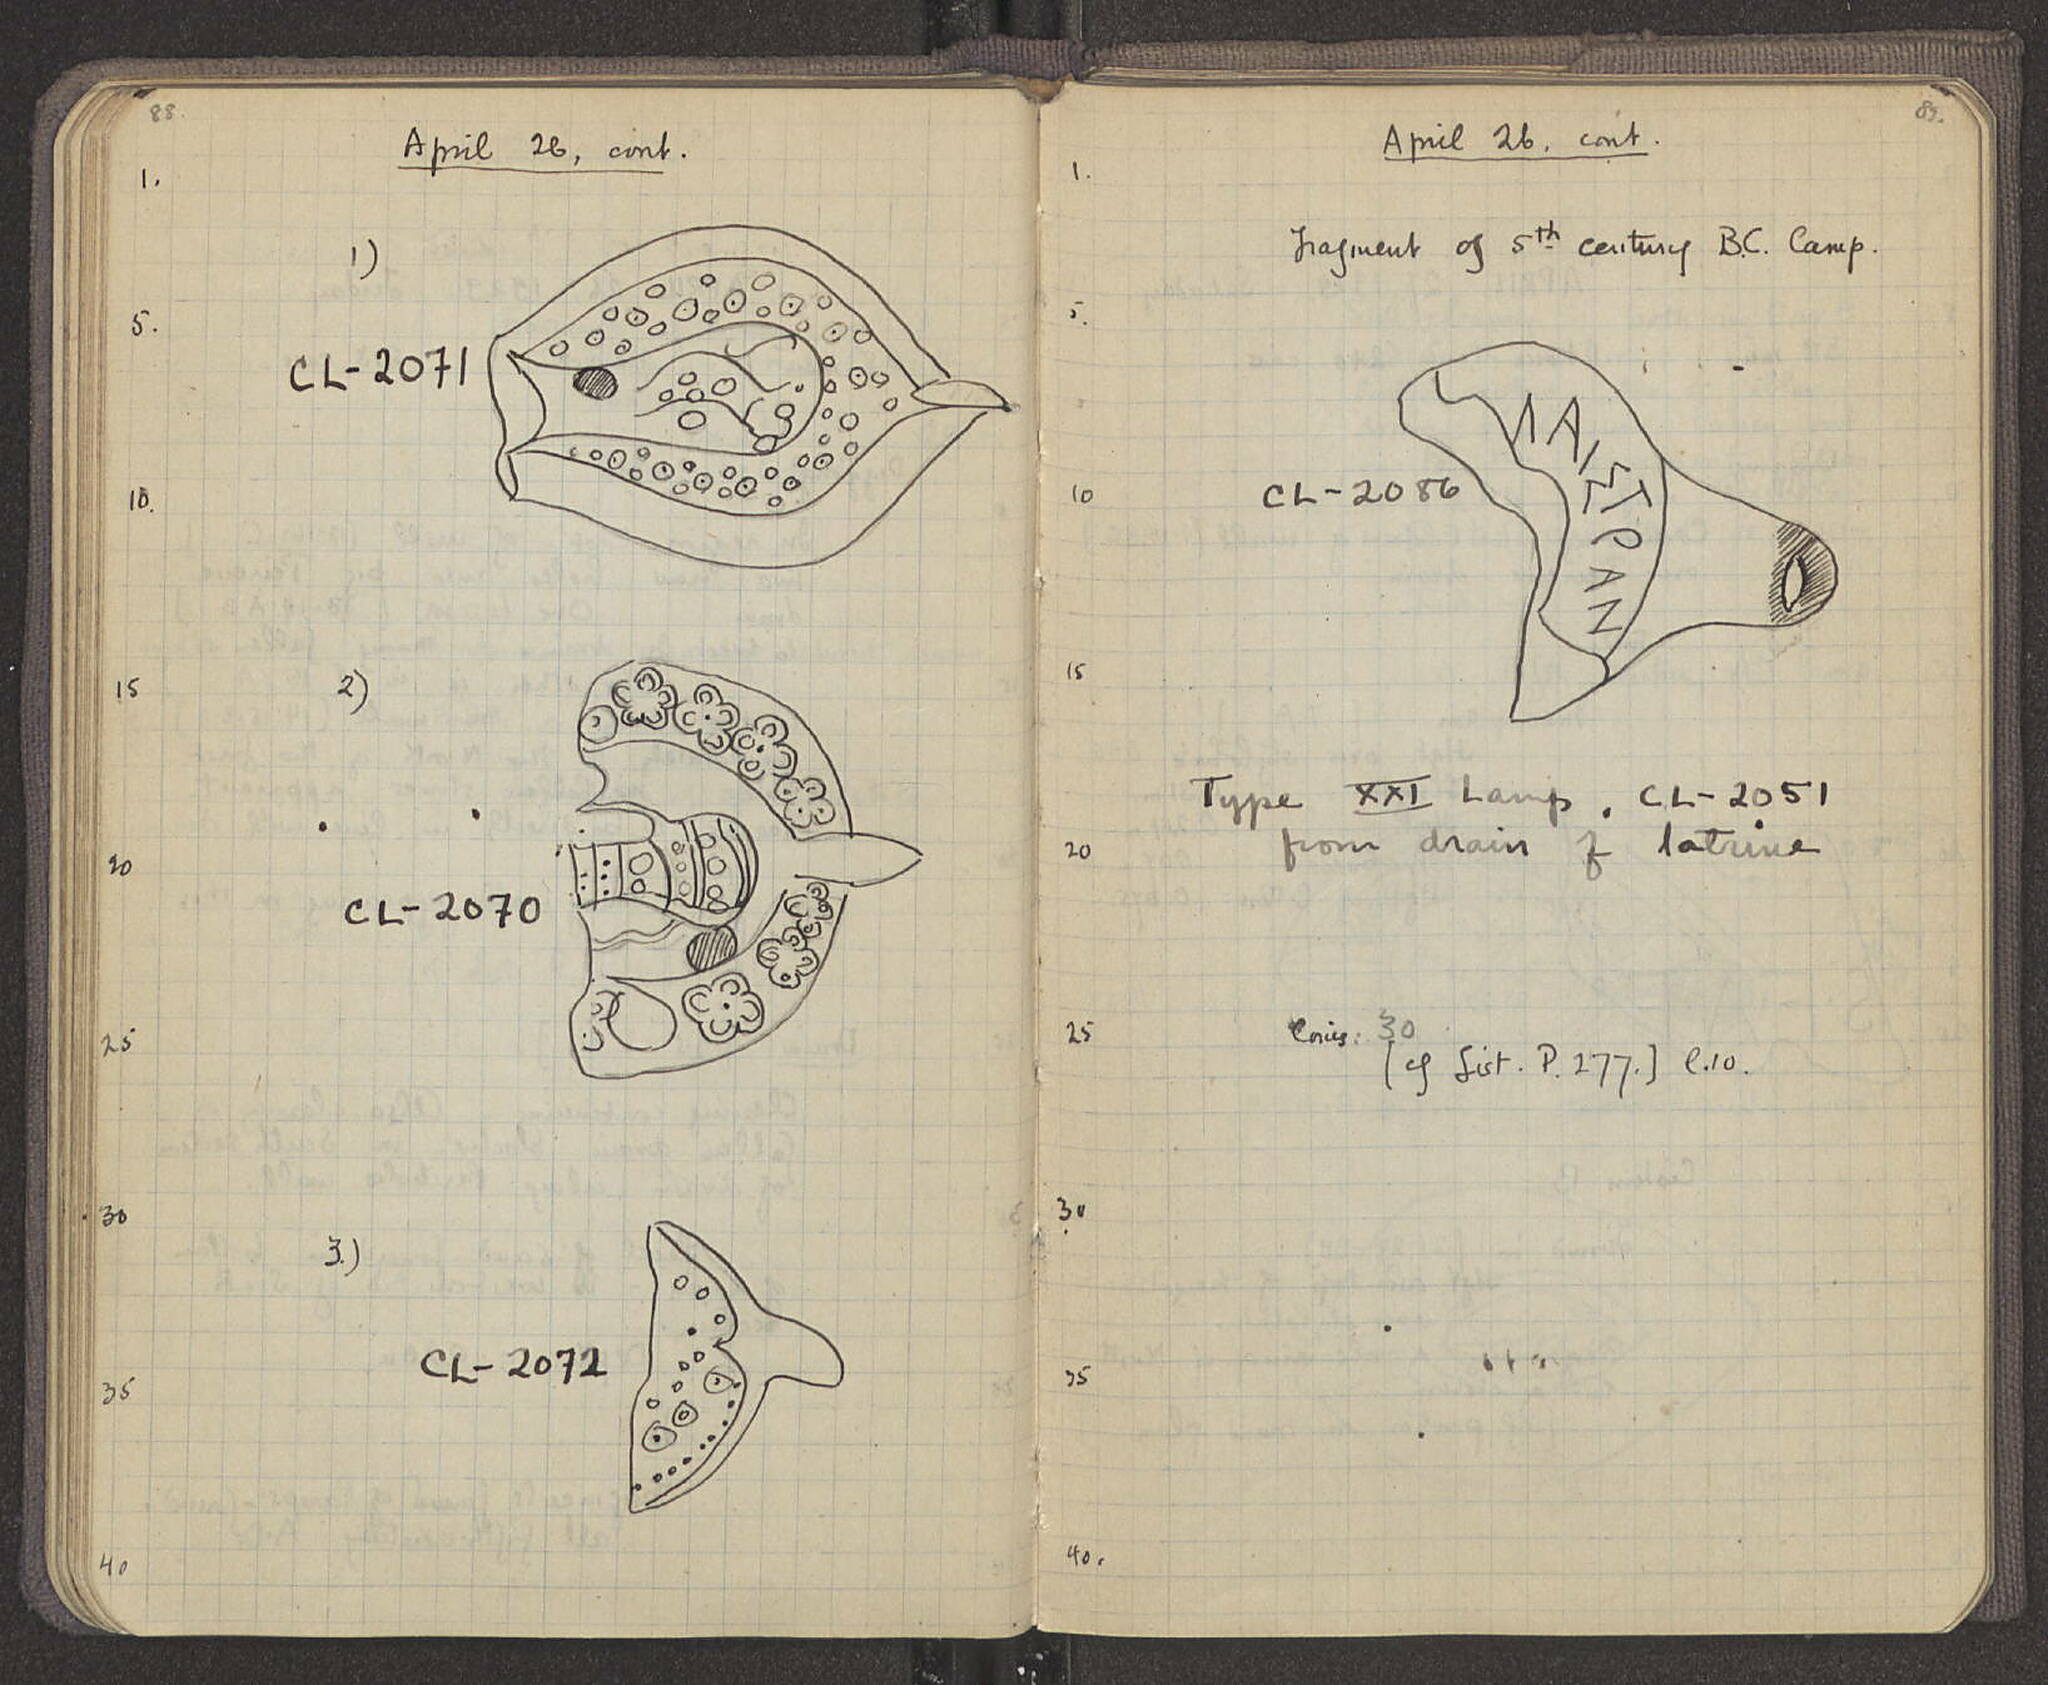 88.
April 26, cont.
1.
1)
5.
CL-2071
10.
15
2)
20
CL-2070
25
30
3.)
CL-2072
35
40
89.
April 26. cont.
1.
Fragment of 5th century B.C. Lamp.
5.
ΛΑΙΣΤΡΑΝ
10
CL-2086
15
Type XXI Lamp. CL-2051
20
from drain of latrine
25
Coins: 30
[cf list. P. 277.] l.10.
30
35
40.